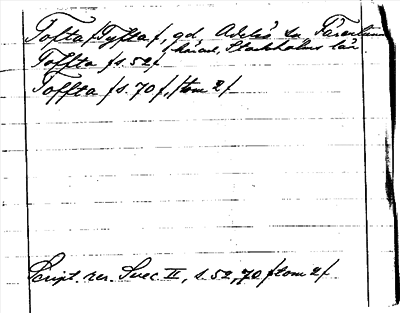 Tofta /Tyfta/, gd, Adelsö sn, Färentuna
härad, Stockholms län.
Toffta /s. 52/
Toffta /s. 70/, /tom 2/
Script. rer. Svec. II, s. 52, 70 /tom 2/